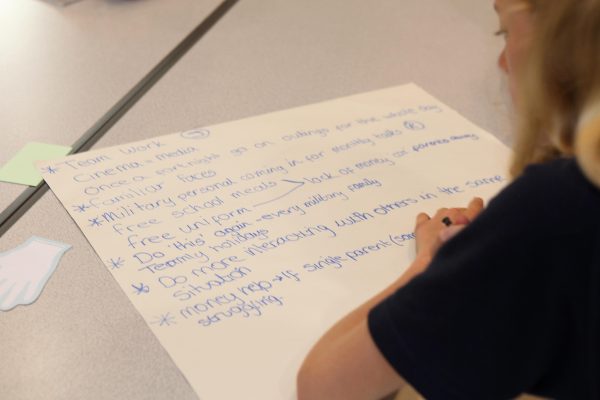 * Team Work
Cinema = media
Once a fortnight go on outings for the whole day
* Familiar faces
* Military personal coming in for monthly talks
free school meals
free uniform lack of money or parents away
* Do "this" again - every military family
Termly holidays
* Do more interacting with others in the same
situation
* money help → If single parent
struggling.